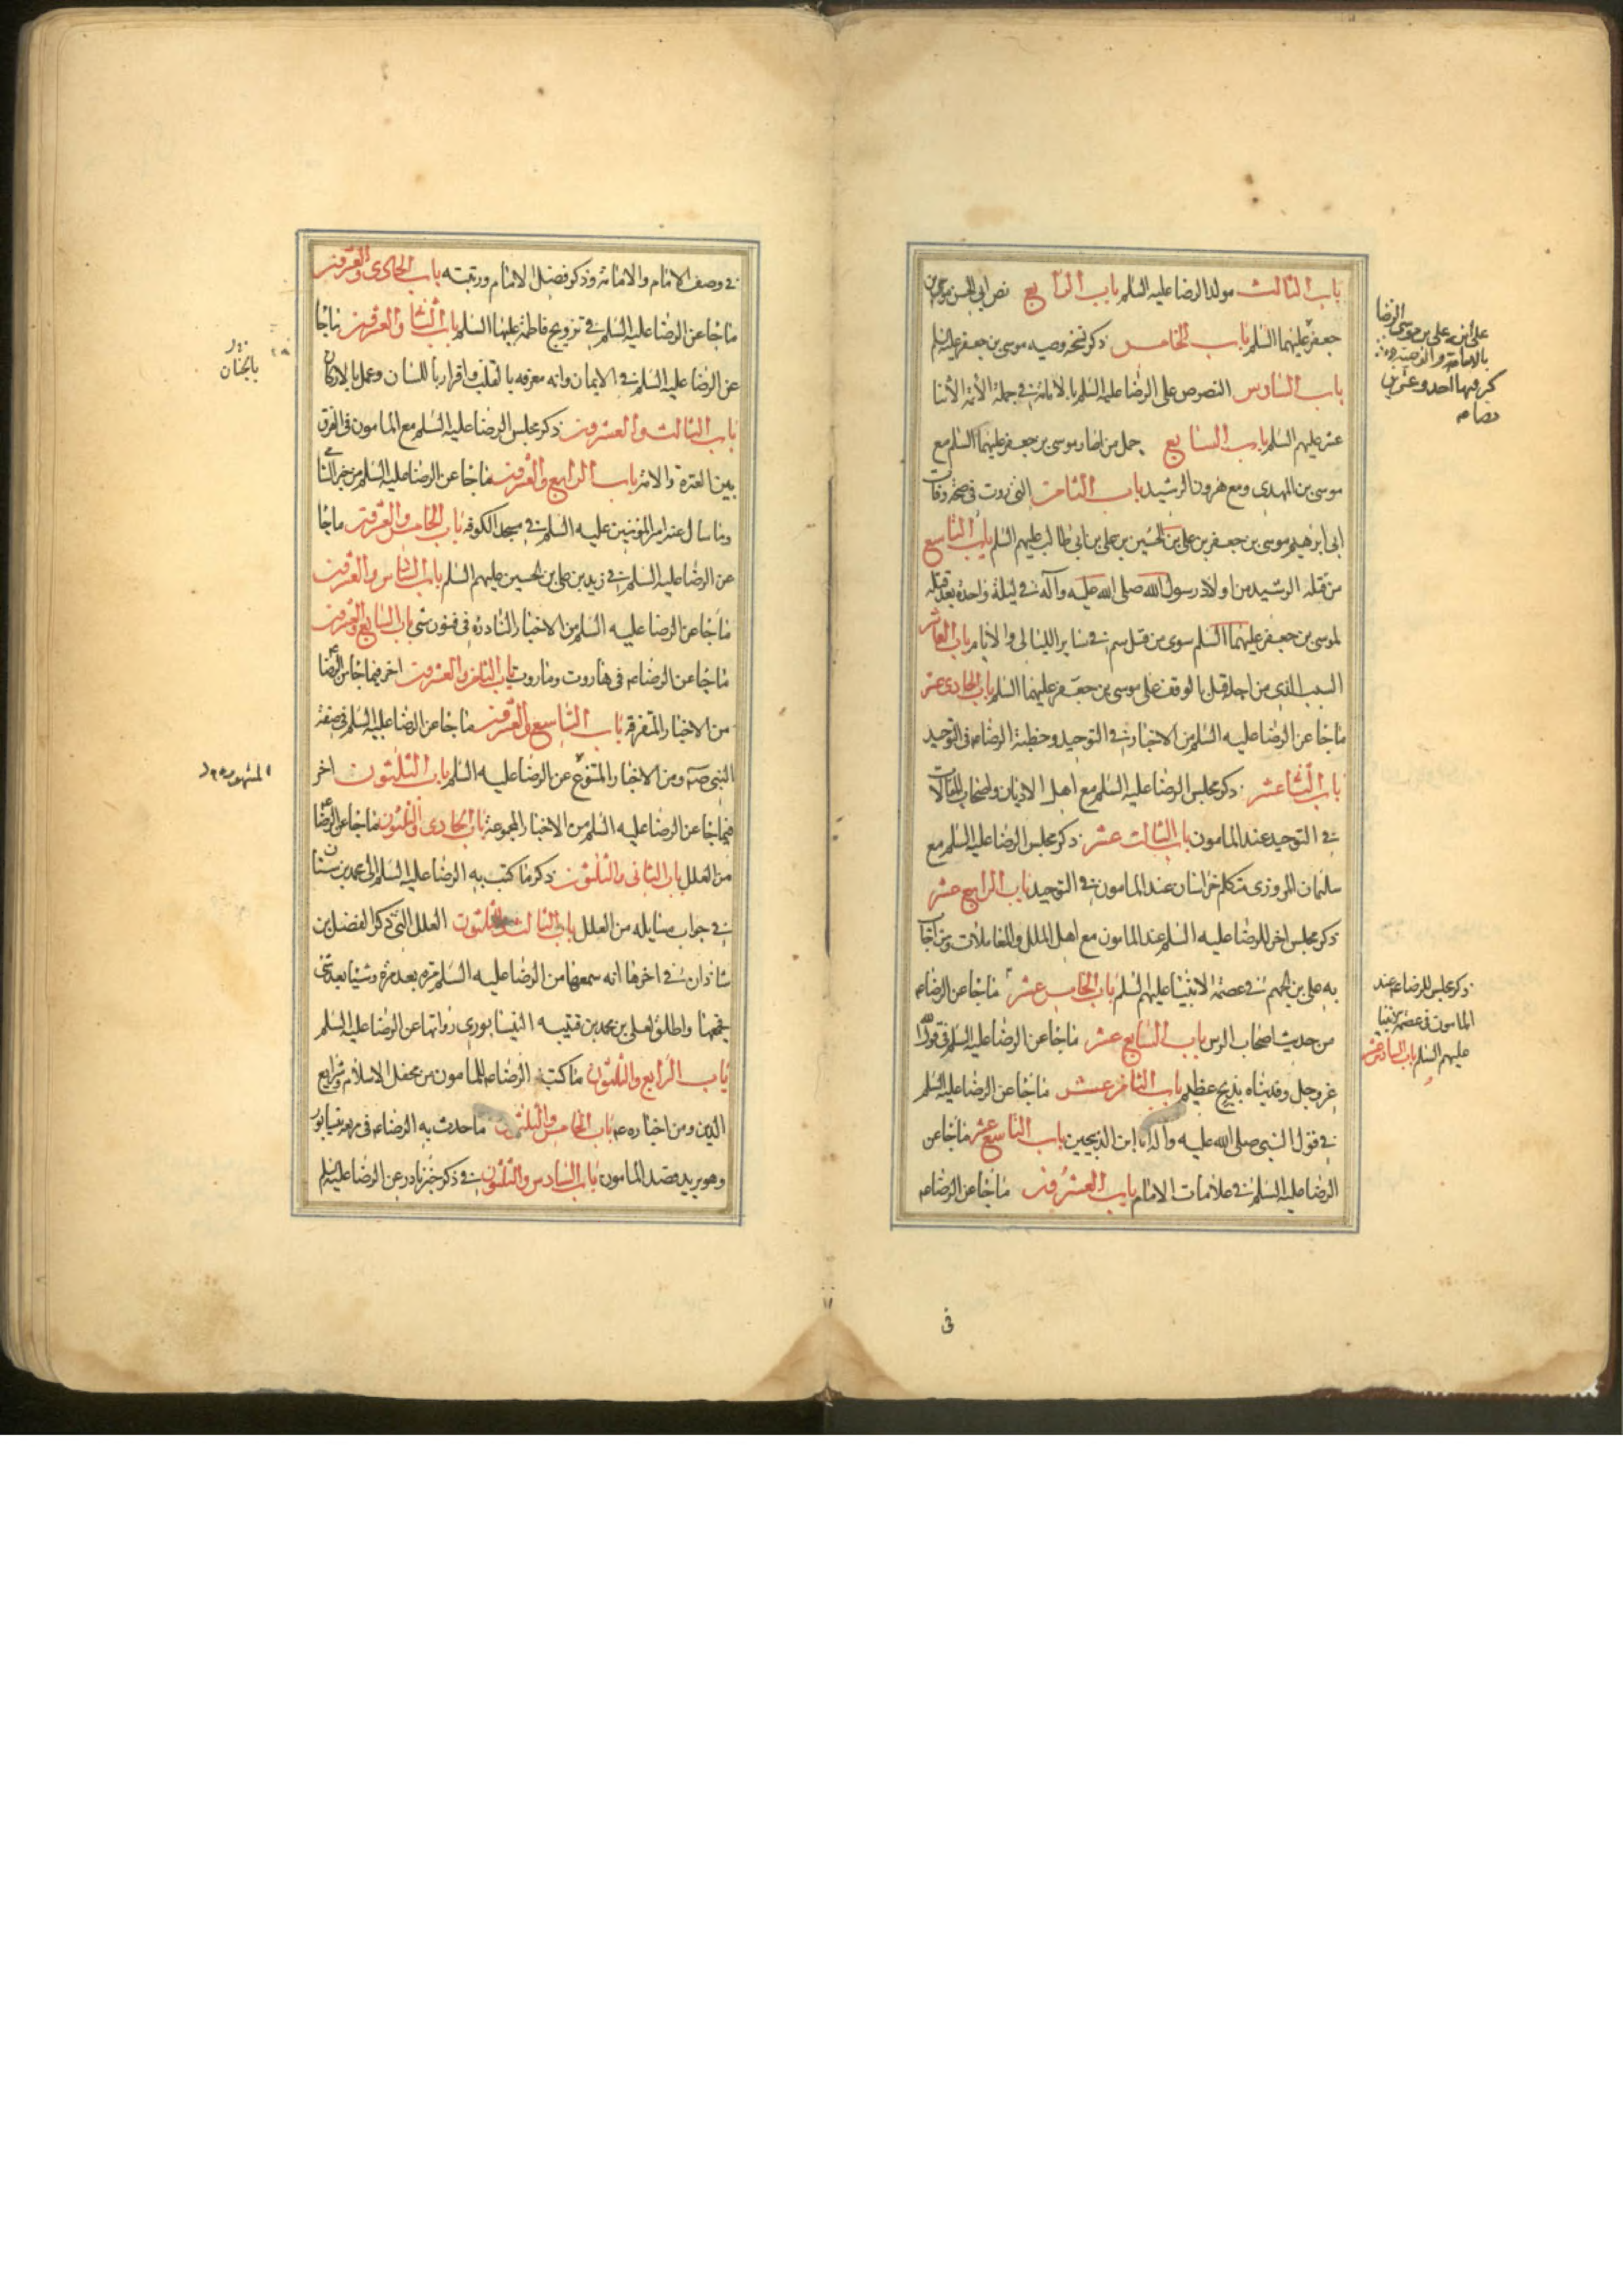 باب الثالث مولد الرضا عليه السلم باب الرابع نص ابي الحسن موسى بن
جعفر عليهما السلم باب الخامس ذكر نسخه وصيه موسى بن جعفر عليه السلم
باب السادس النصوص على الرضا عليه السلم بالامامة في جملة الأئمة الاثنا
عشر عليهم السلم باب السابع جمل من اخبار موسى بن جعفر عليهما السلم مع
موسى بن المهدي ومع هرون الرشيد باب الثامن التي رويت في صحة وفات
ابي ابرهيم موسى بن جعفر بن علي بن الحسين بن علي بن ابي طالب عليهم السلم باب التاسع
من قتله الرشيد من اولاد رسول الله صلى الله عليه وآله في ليلة واحدة بعد قتله
لموسى بن جعفر عليهما السلم سوى من قتل سم في ساير الليالي والايام باب العاشر
السبب الذي من اجله قيل بالوقف على موسى بن جعفر عليهما السلم باب الحادي عشر
ما جا عن الرضا عليه السلم من الاخبار في التوحيد وخطبة الرضا عه في التوحيد
باب الثنا عشر ذكر مجلس الرضا عليه السلم مع اهل الاديان واصحاب المقالات
في التوحيد عند المامون باب الثالث عشر ذكر مجلس الرضا عليه السلم مع
سليمان المروزي متكلم خراسان عند المامون في التوحيد باب الرابع عشر
ذكر مجلس اخر للرضا عليه السلم عند المامون مع اهل الملل والمقاملات وما اجاب
به علي بن الجهم في عصمة الانبيا عليهم السلم باب الخامس عشر ما جا عن الرضا عه
من حديث اصحاب الرس باب السابع عشر ما جا عن الرضا عليه السلم في قول الله
عز وجل وفديناه بذبح عظيم باب الثامن عشر ما جا عن الرضا عليه السلم
في قول النبي صلى الله عليه وآله انا ابن الذبيحين باب التاسع عشر ما جا عن
الرضا عليه السلم في علامات الامام باب العشرون ما جا عن الرضا عه
في
على ابنه علي بن موسى الرضا
بالامامة والوصية
ذكر مجلس للرضا عه عند
المامون في عصمة الانبيا
عليهم السلم باب السادس عشر
في وصف الامام والامامة وذكر فضل الامام ورتبته باب الحادي والعشرون
ما جا عن الرضا عليه السلم في تزويج فاطمة عليها السلم باب الثنا والعشرون ما جا
عن الرضا عليه السلم في الايمان وانه معرفه بالقلب واقرار باللسان وعمل بالاركان
باب الثالث والعشرون ذكر مجلس الرضا عليه السلم مع المامون في الفرق
بين العترة والامة باب الرابع والعشرون ما جا عن الرضا عليه السلم من خبر الشامي
وما سال عنه امير المؤمنين عليه السلم في مسجد الكوفه باب الخامس والعشرون ما جا
عن الرضا عليه السلم في زيد بن علي بن الحسين عليهم السلم باب السادس والعشرون
ما جا عن الرضا عليه السلم من الاخبار النادره في فنون شتى باب السابع والعشرون
ما جا عن الرضا عه في هاروت وماروت باب الثامن والعشرون اخر فيما جا عن الرضا
من الاخبار المتفرقه باب التاسع والعشرون ما جا عن الرضا عليه السلم في صفة
النبي صه ومن الاخبار المتنوع عن الرضا عليه السلم باب الثلثون اخر
فيما جا عن الرضا عليه السلم من الاخبار المجموعة باب الحادي والثلثون ما جا عن الرضا
من العلل باب الثاني والثلثون ذكر ما كتب به الرضا عليه السلم الى محمد بن سنان
في جواب مسايله من العلل باب الثالث والثلثون العلل التي ذكر الفضل بن
شاذان في اخرها انه سمعها من الرضا عليه السلم مرة بعد مرة وشيا بعد شي
فجمعها واطلق لعلي بن محمد بن قتيبه النيسابوري روايتها عن الرضا عليه السلم
باب الرابع والثلثون ما كتبه الرضا عه للمامون من محض الاسلام وشرايع
الدين ومن اخباره عه باب الخامس والثلثون ما حدث به الرضا عه في مربعة نيسابور
وهو يريد قصد المامون باب السادس والثلثون في ذكر خبر نادر عن الرضا عليه السلم
بالجنان